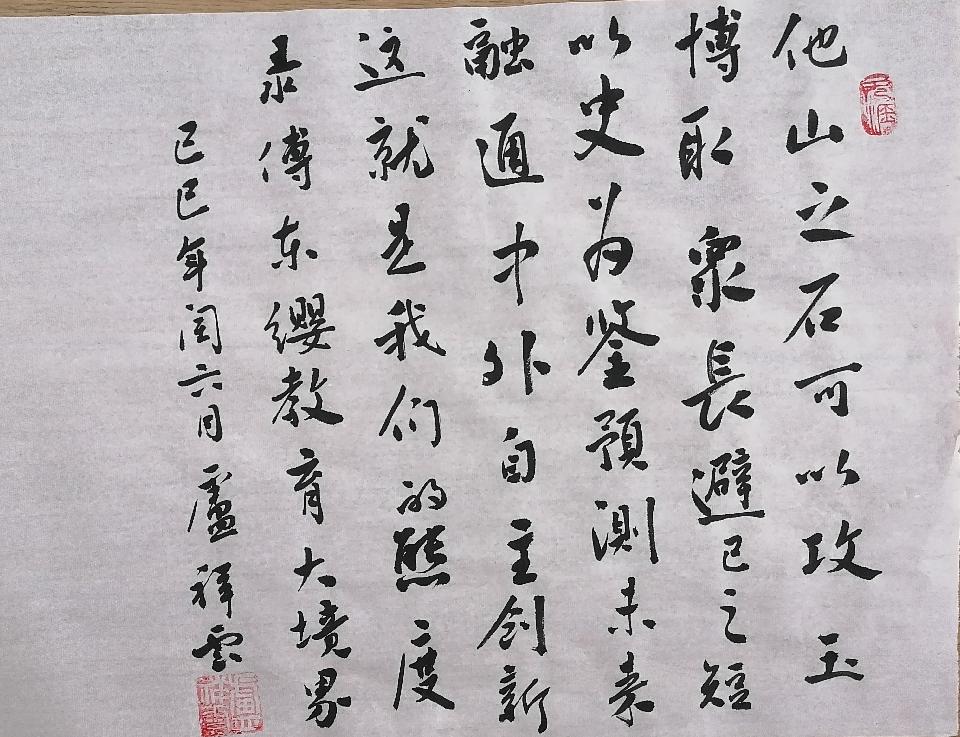 他山之石可以攻玉
博取衆長避己之短
以史为鉴預測未来
融通中外自主创新
这就是我们的態度
录傅东缨教育大境界
己巳年闰六月盧祥雲